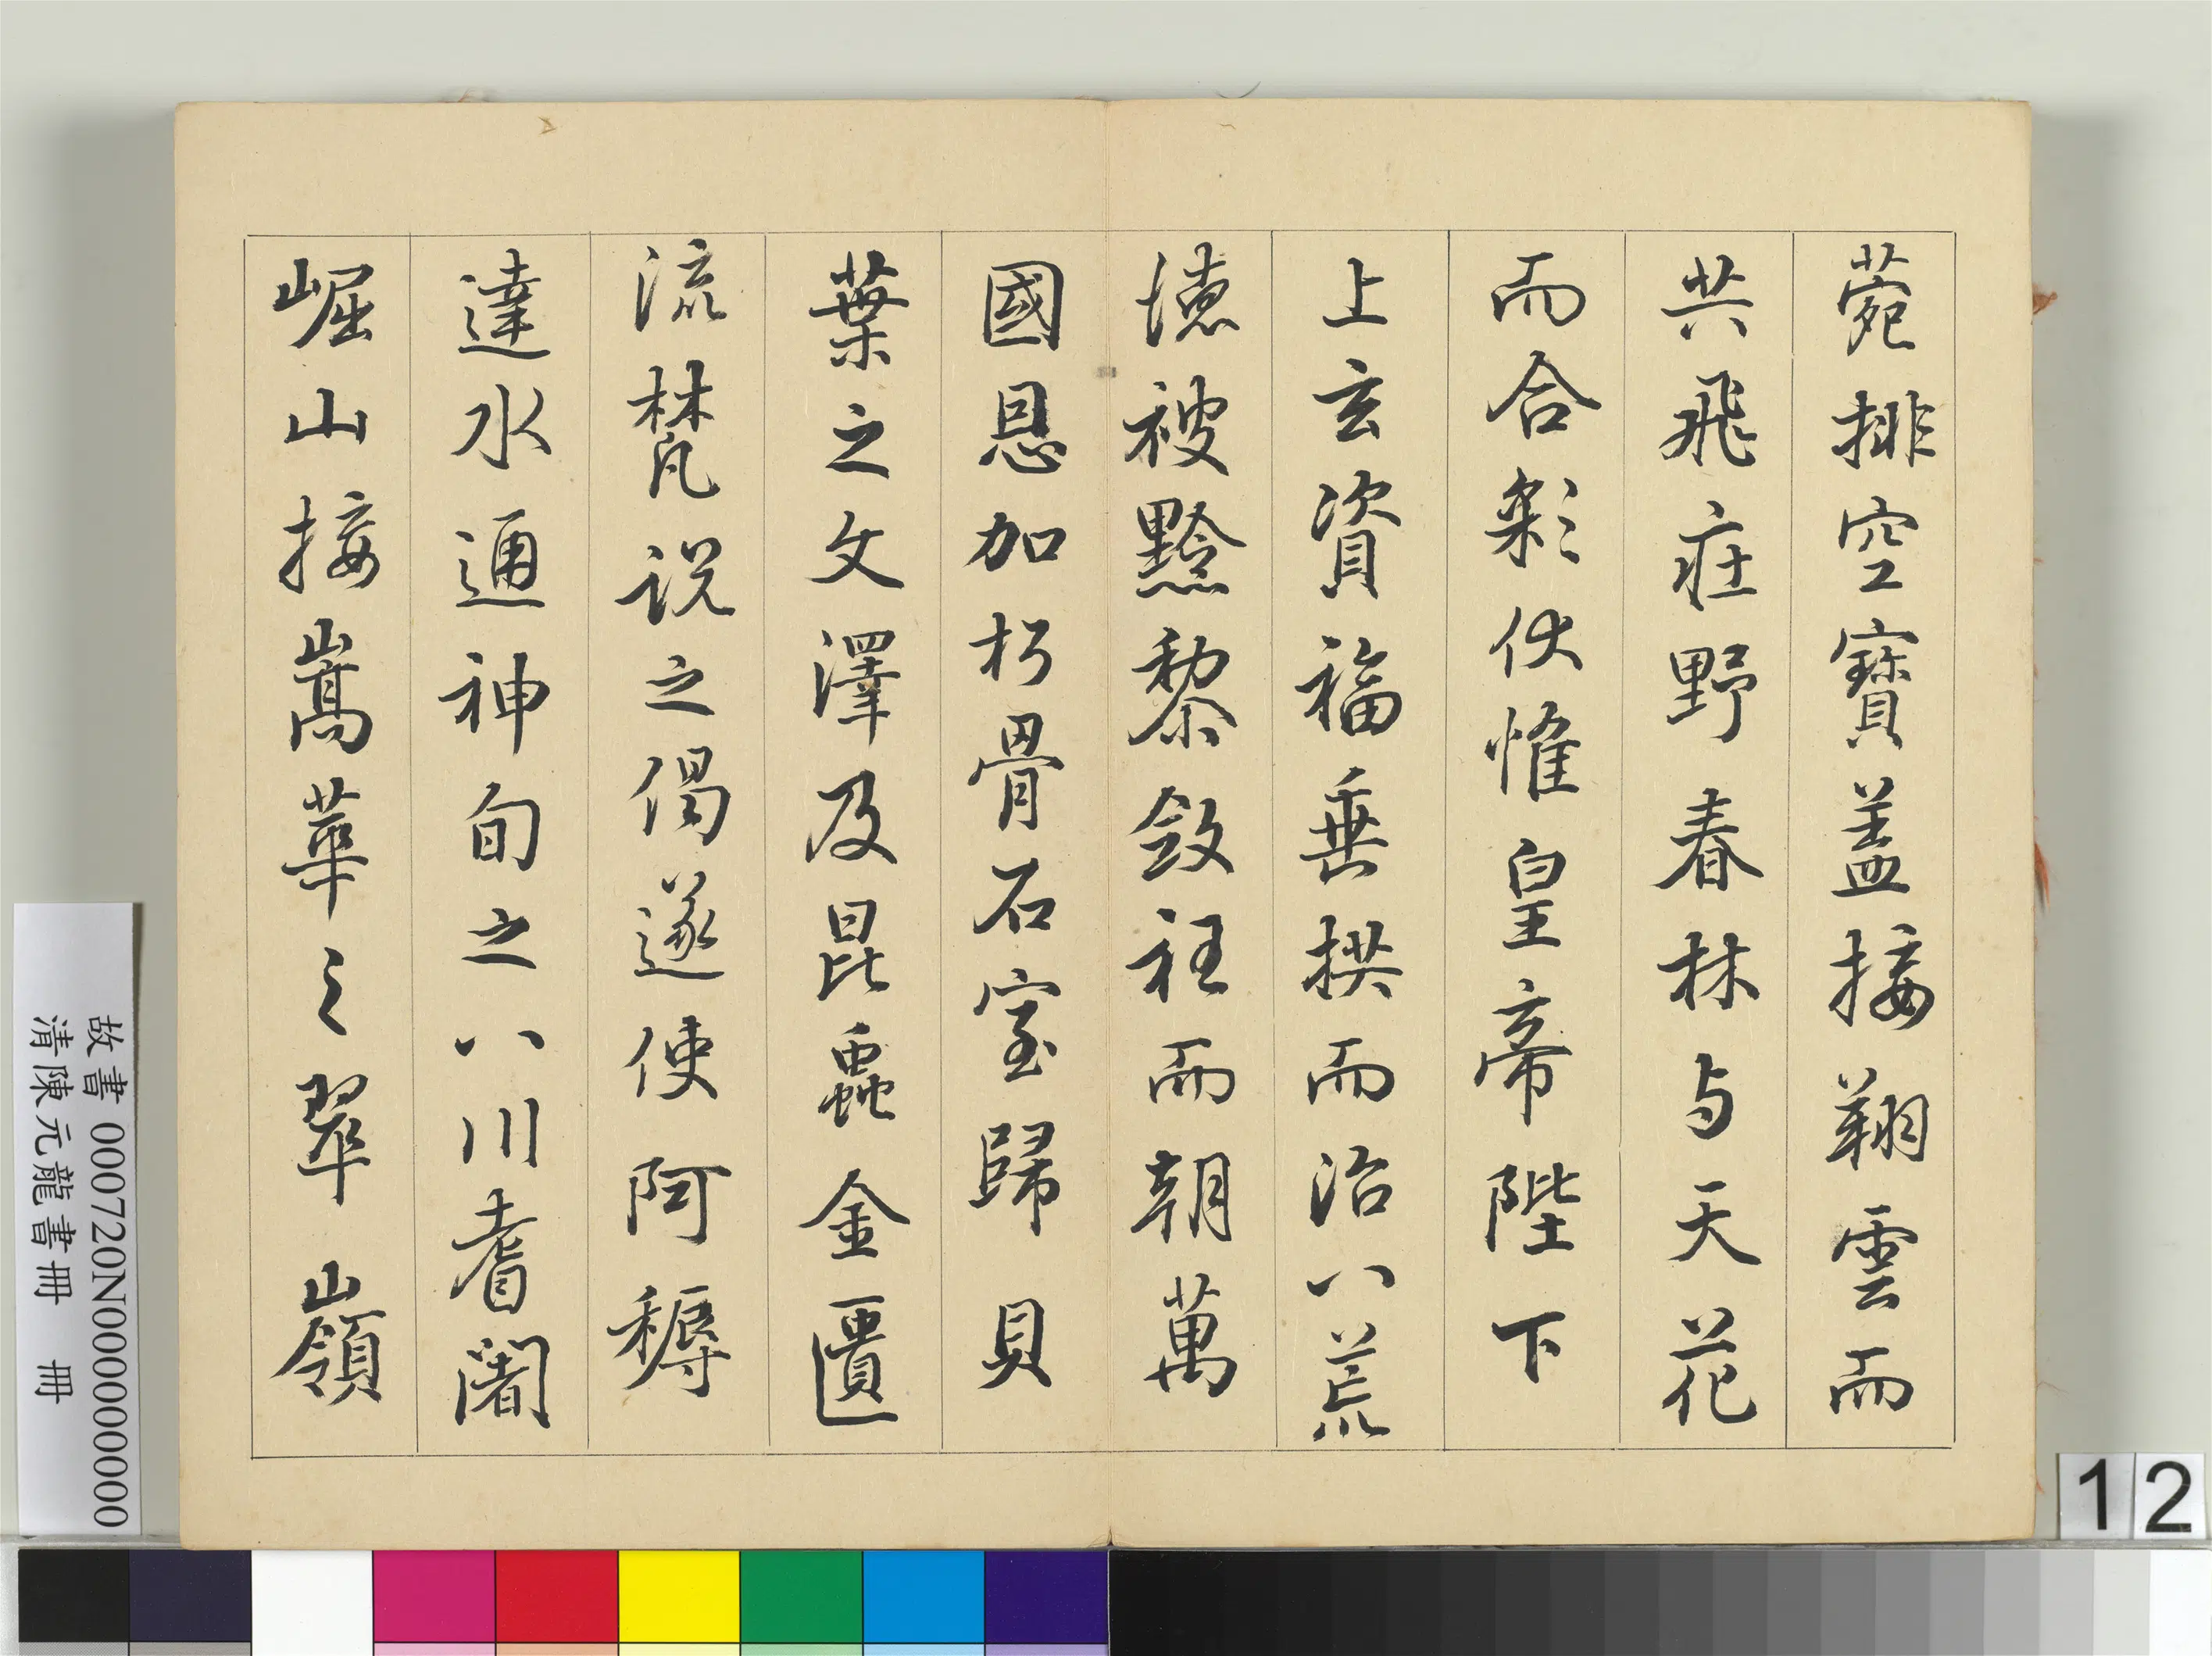 菀排空寶蓋接翔雲而
共飛莊野春林与天花
而合彩伏惟皇帝陛下
上玄資福垂拱而治八荒
德被黔黎斂衽而朝萬
國恩加朽骨石室歸貝
葉之文澤及昆蟲金匱
流梵説之偈遂使阿耨
達水通神甸之八川耆闍
崛山接嵩華之翠嶺
故書 000720N000000000
清陳元龍書冊 冊
12